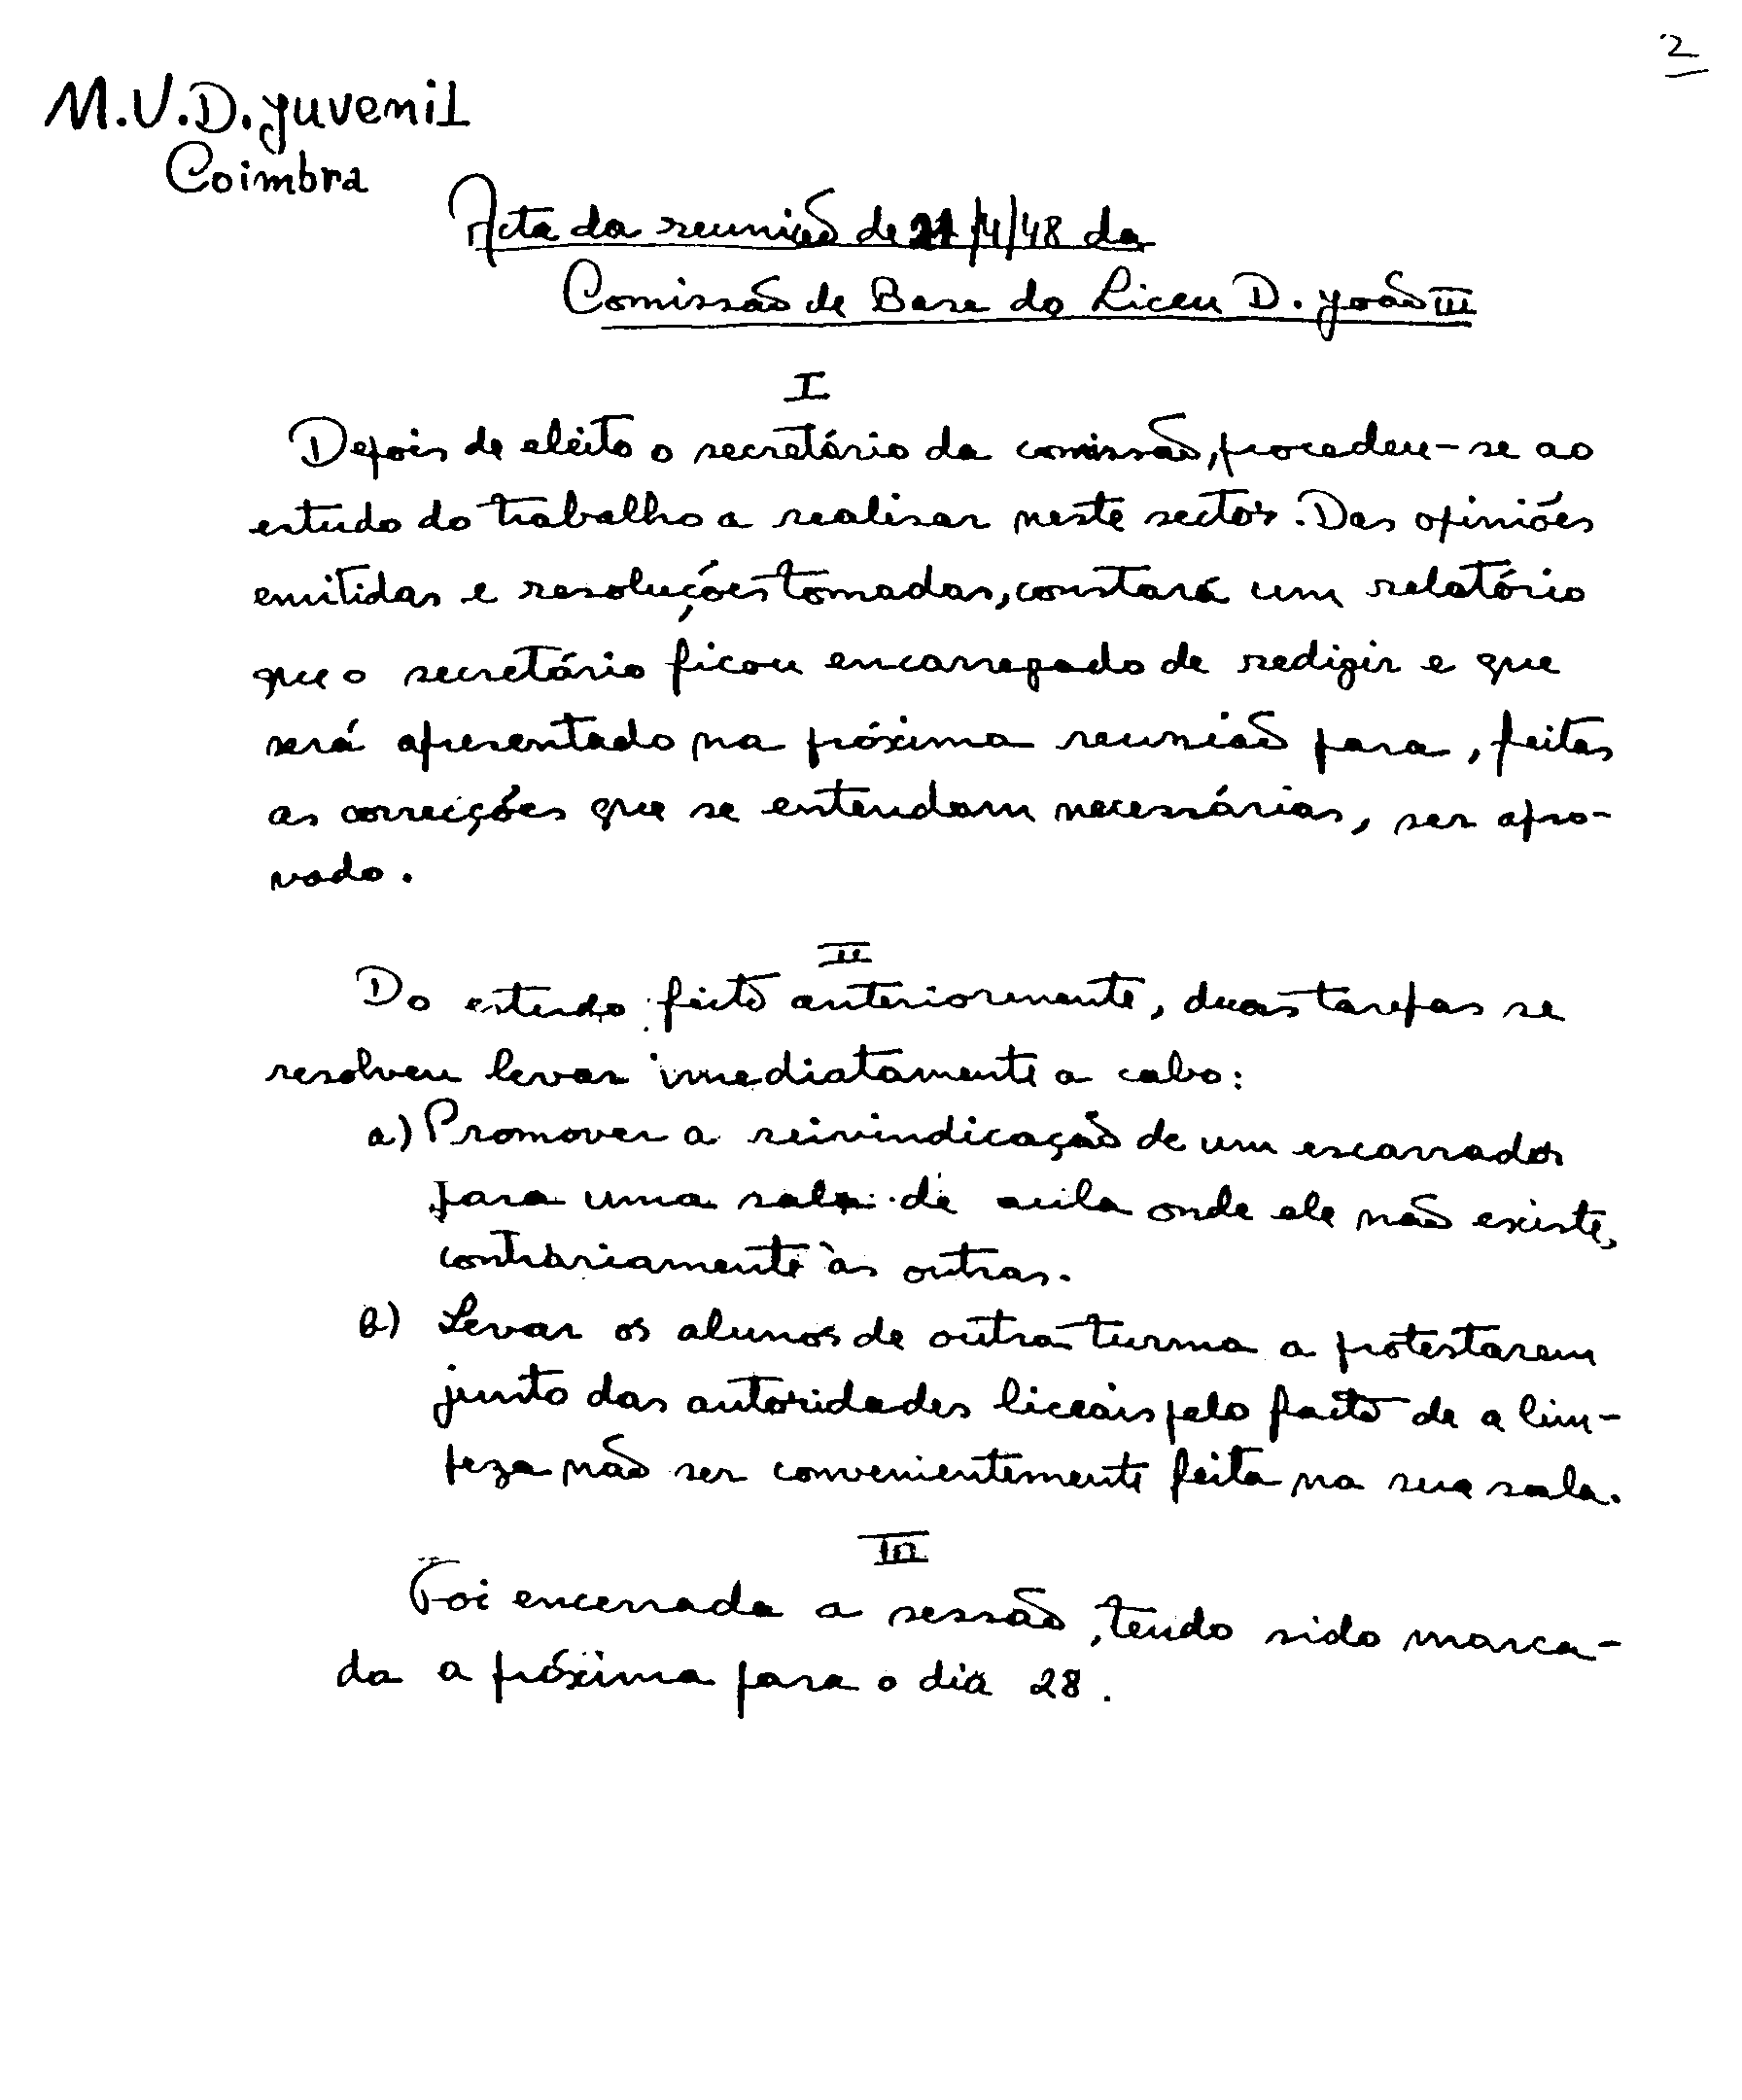 2
M.U.D. Juvenil
Coimbra
Acta da reunião de 21/4/48 da
Comissão de Base do Liceu D. João III
I
Depois de eleito o secretário da comissão, procedeu-se ao
estudo do trabalho a realisar neste sector. Das opiniões
emitidas e resoluções tomadas, constará um relatório
que o secretário ficou encarregado de redigir e que
será apresentado na próxima reunião para, feitas
as correcções que se entendam necessárias, ser apro-
vado.
II
Do estudo feito anteriormente, duas tarefas se
resolveu levar imediatamente a cabo:
a) Promover a reivindicação de um escarrador
para uma sala de aula onde ele não existe,
contràriamente às outras.
b) Levar os alunos de outra turma a protestarem
junto das autoridades liceais pelo facto de a lim-
peza não ser convenientemente feita na sua sala.
III
Foi encerrada a sessão, tendo sido marca-
da a próxima para o dia 28.